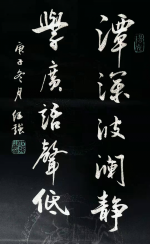 潭深波澜静
學廣語聲低
庚子冬月任强